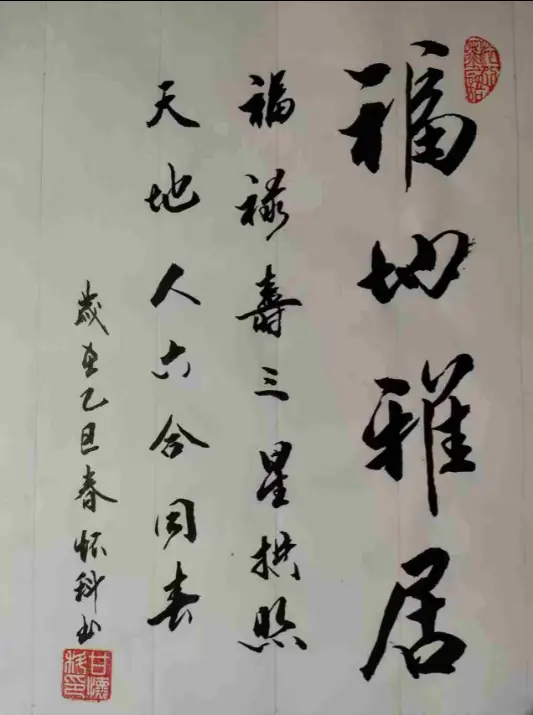 福地雅居
福禄壽三星拱照
天地人六合同春
歲在乙巳春怀科书
甘懷科印